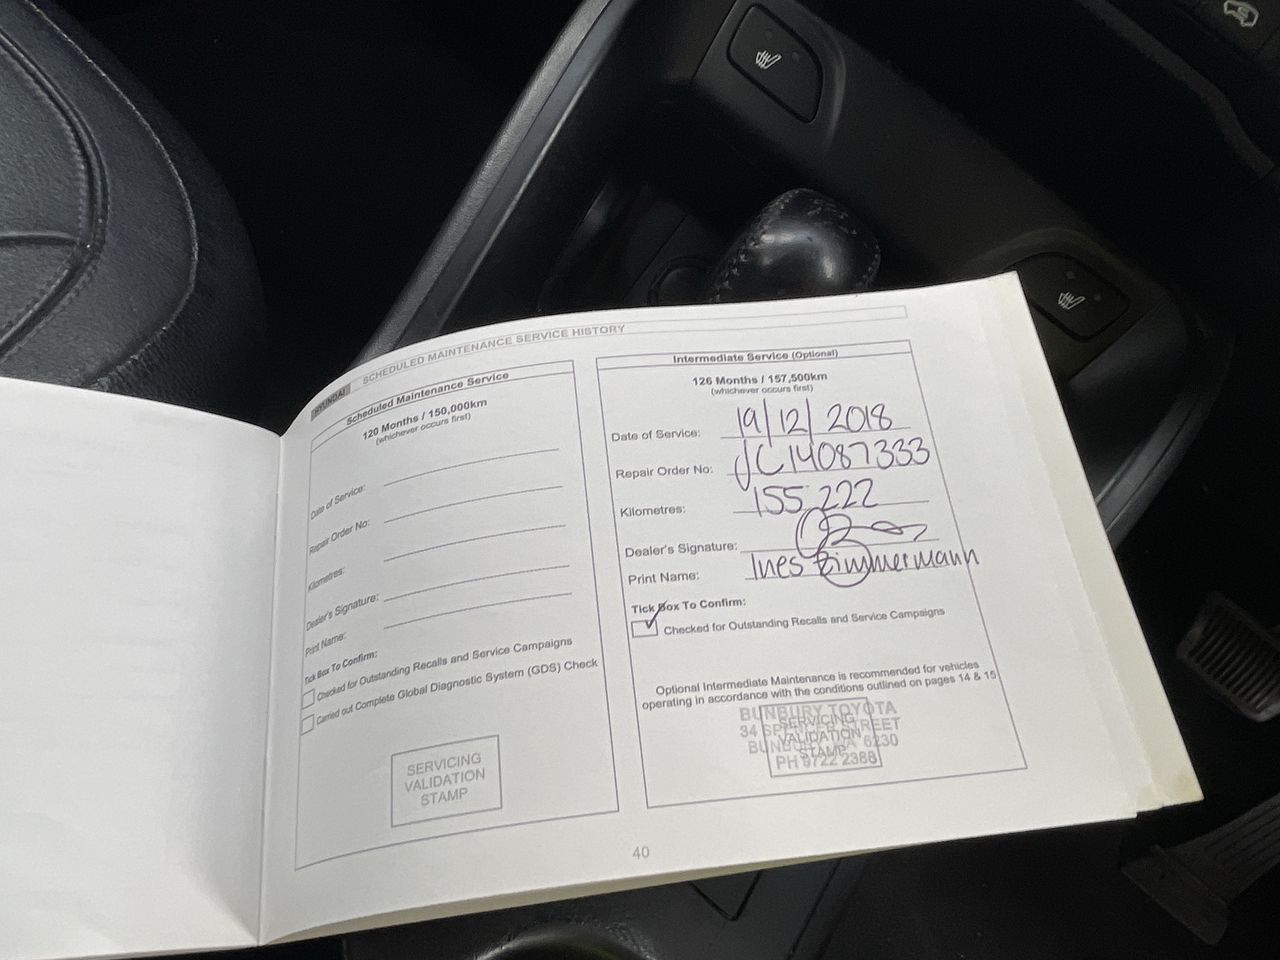 HYUNDAI SCHEDULED MAINTENANCE SERVICE HISTORY
Scheduled Maintenance Service
120 Months / 150,000km
(whichever occurs first)
Date of Service:
Repair Order No:
Kilometres:
Dealer's Signature:
Print Name:
Tick Box To Confirm:
Checked for Outstanding Recalls and Service Campaigns
Carried out Complete Global Diagnostic System (GDS) Check
SERVICING
VALIDATION
STAMP
Intermediate Service (Optional)
126 Months / 157,500km
(whichever occurs first)
Date of Service: 19/12/2018
Repair Order No: JC14087333
Kilometres: 155 222
Dealer's Signature:
Print Name: Ines Zimmermann
Tick Box To Confirm:
Checked for Outstanding Recalls and Service Campaigns
Optional Intermediate Maintenance is recommended for vehicles
operating in accordance with the conditions outlined on pages 14 & 15
BUNBURY TOYOTA
34 STREET
BUNBURY WA 6230
PH 9722 2388
SERVICING
VALIDATION
STAMP
40